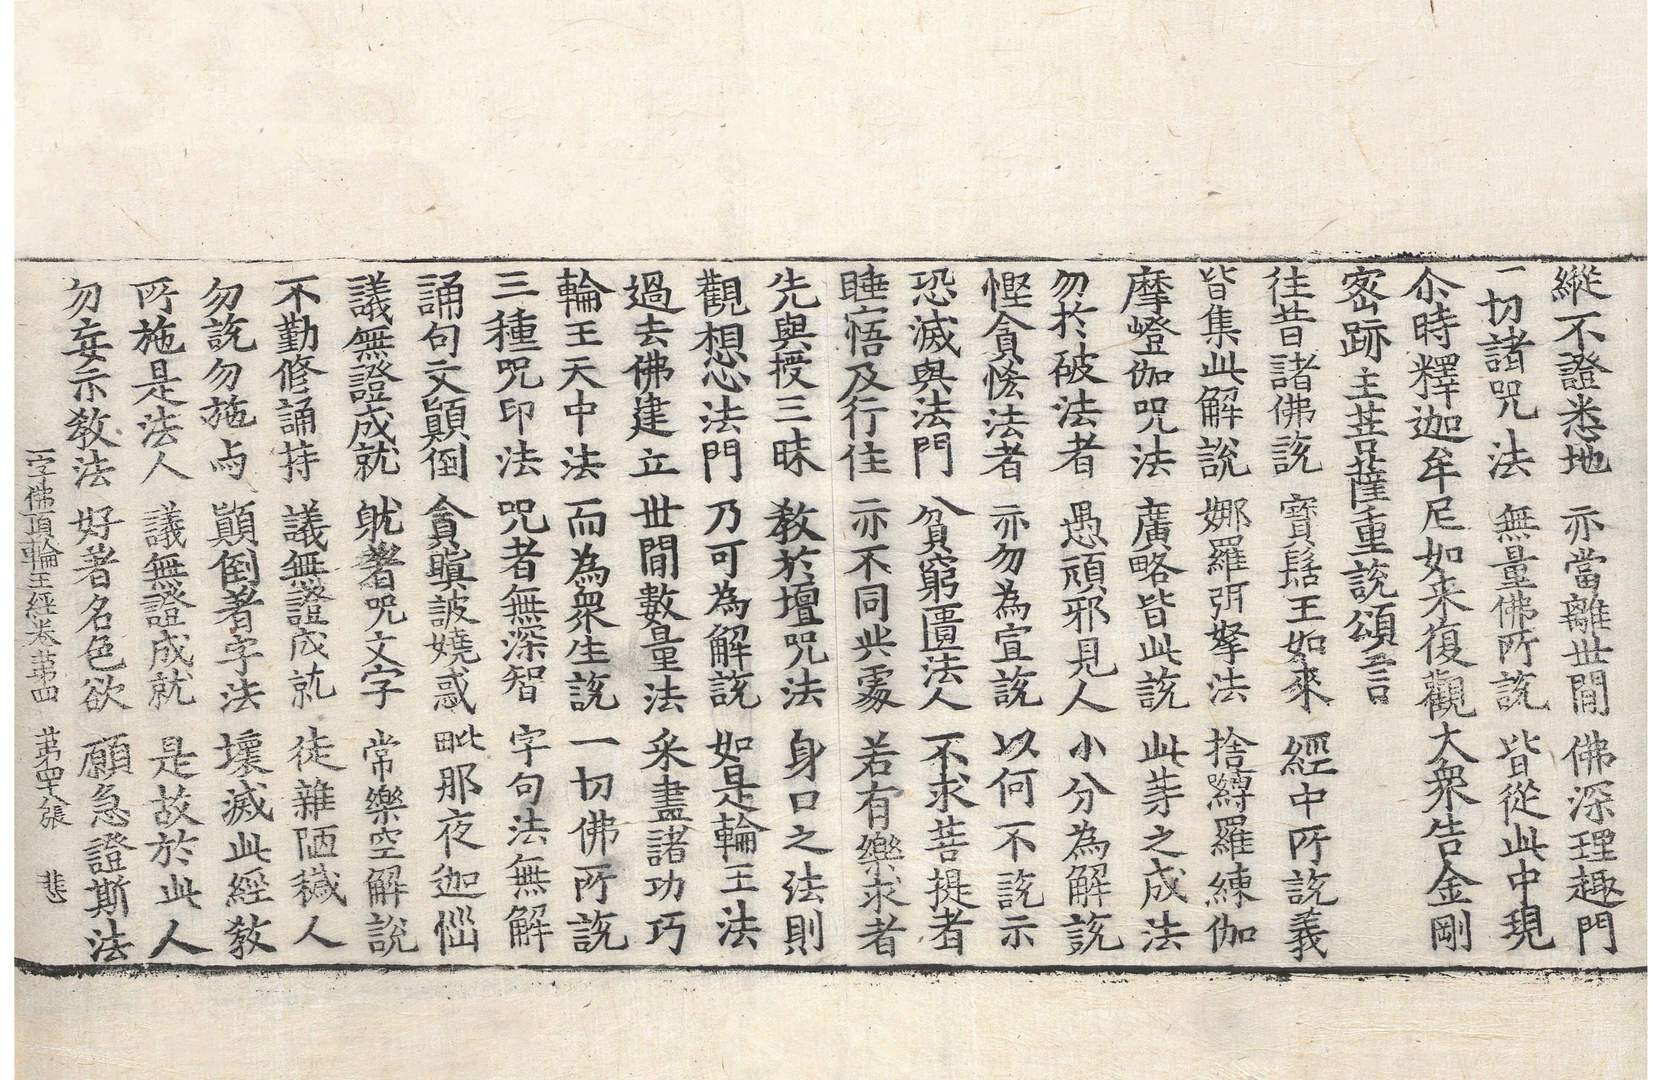 縱不證悉地　亦當離世閒　佛深理趣門
一切諸呪法　無量佛所說　皆從此中現
尒時釋迦牟尼如來復觀大衆告金剛
密跡主菩薩重說頌言
往昔諸佛說　寶髻王如來　經中所說義
皆集此解說　娜羅弭拏法　捨縛羅練伽
摩蹬伽呪法　廣略皆此說　此等之成法
勿於破法者　愚頑邪見人　小分為解說
慳貪悋法者　亦勿為宣說　以何不說示
恐滅與法門　貧窮匱法人　不求菩提者
睡寤及行住　亦不同此處　若有樂求者
先與授三昧　教於壇呪法　身口之法則
觀想忿法門　乃可為解說　如是輪王法
過去佛建立　世閒數量法　采盡諸功巧
輪王天中法　而為衆生說　一切佛所說
三種呪印法　呪者無深智　字句法無解
誦句文顛倒　貪瞋詖嬈惑　毗那夜迦惱
議無證成就　躭著呪文字　常樂空解說
不勤修誦持　議無證成就　徒雜陋穢人
勿說勿施与　顛倒著字法　壞滅此經教
所施是法人　議無證成就　是故於此人
勿妄示教法　好著名色欲　願急證斯法
一字佛頂輪王經卷第四　第四十八張　悲